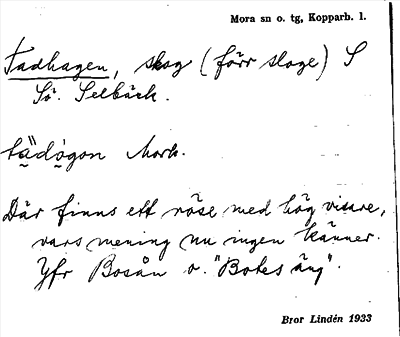 Mora sn o. tg, Kopparb. l.
Tadhagen, skog (förr sloge) S
Sö. Selbäck.
tädogon Mork.
Där finns ett röse med hög visare,
vars mening nu ingen känner.
Yfr Bosån o. "Botes äng".
Bror Lindén 1933